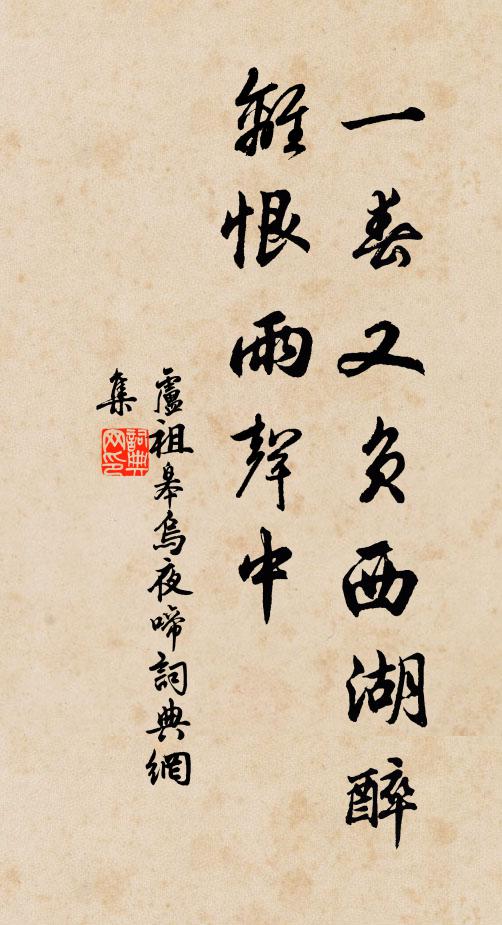 一春又負西湖醉
離恨雨聲中
盧祖皋烏夜啼詞典網
集
詞典網印